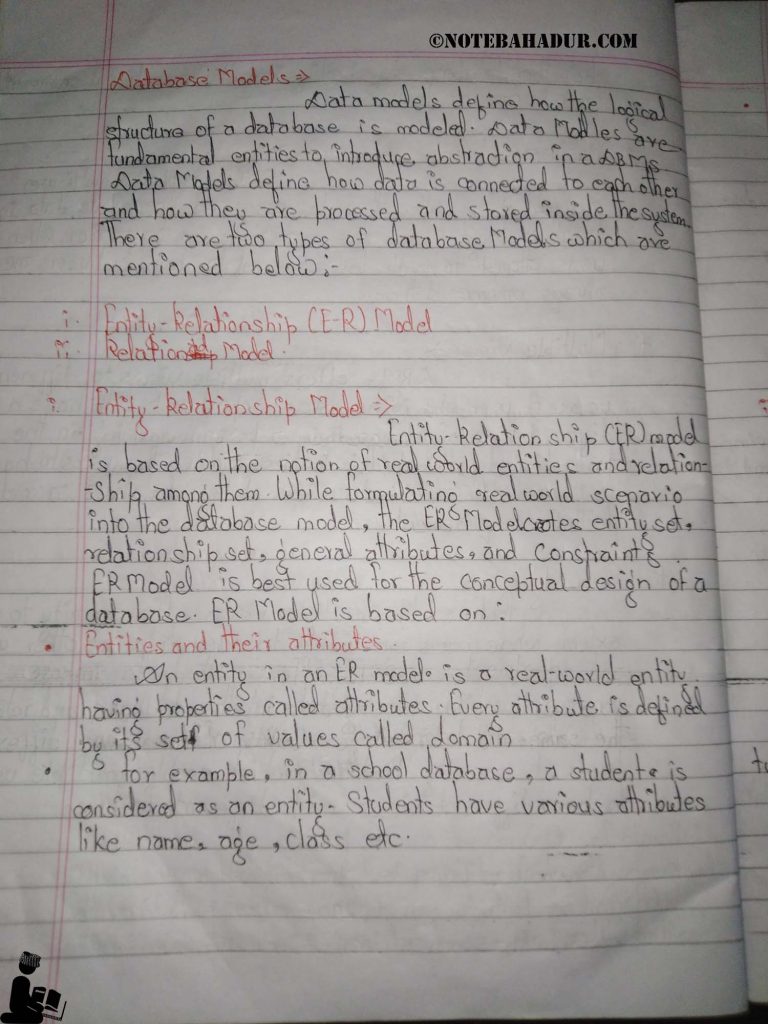 ©NOTEBAHADUR.COM
Database Models ⇒
Data models define how the logical
structure of a database is modeled. Data Modles are
fundamental entities to introduce abstraction in a DBMS
Data Models define how data is connected to each other
and how they are processed and stored inside the system.
There are two types of database Models which are
mentioned below:-
i. Entity-Relationship (E-R) Model
ii. Relation Model.
i. Entity-Relationship Model ⇒
Entity-Relationship (ER) model
is based on the notion of real world entities and relation-
-ship among them. While formulating real world scenario
into the database model, the ER Model creates entity set,
relationship set, general attributes, and constraints
ER Model is best used for the conceptual design of a
database. ER Model is based on:
• Entities and their attributes.
An entity in an ER model is a real-world entity
having properties called attributes. Every attribute is defined
by its set of values called domain
• for example, in a school database, a student is
considered as an entity. Students have various attributes
like name, age, class etc.